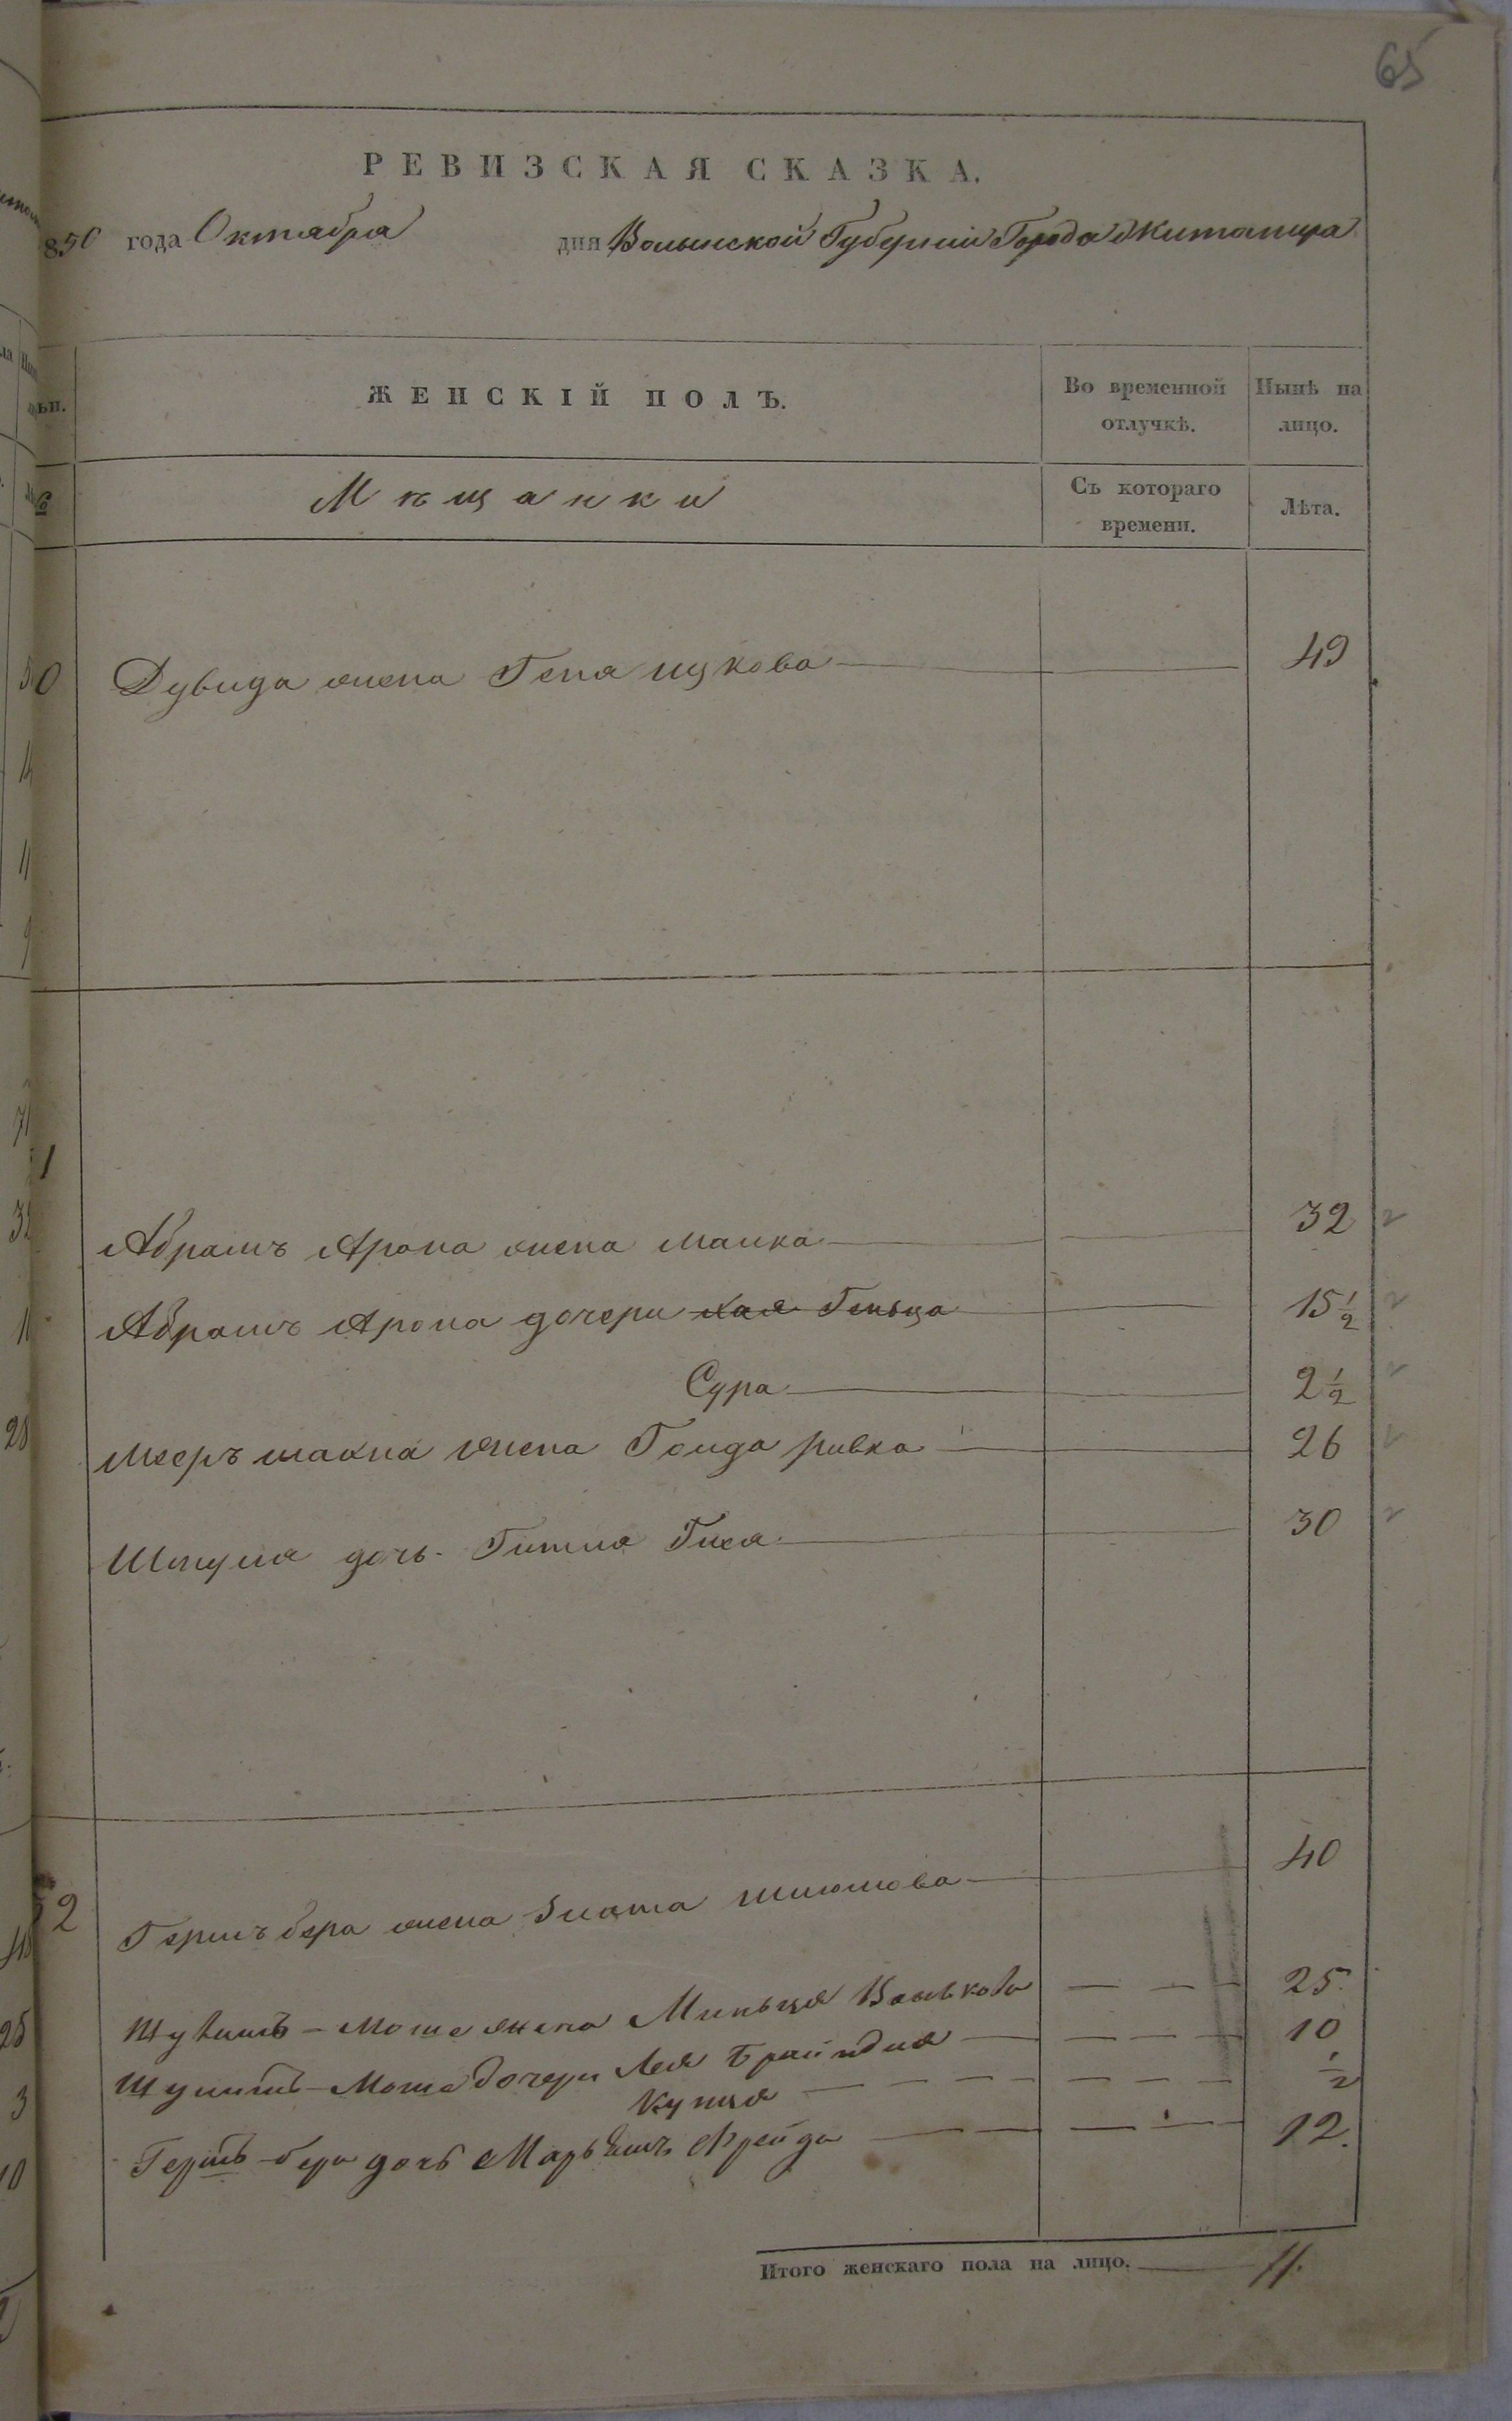 65
РЕВИЗСКАЯ СКАЗКА.
850 года Октября дня Волынской Губерніи Города Житомира
ЖЕНСКІЙ ПОЛЪ.
Во временной отлучкѣ.
Нынѣ на лицо.
Мѣщанки
Съ котораго времени.
Лѣта.
50 Дувида жена Геня ицкова 49
Абрамъ Арона жена Малка 32
Абрамъ Арона дочери Хая Гельца 15 1/2
Сура 2 1/2
Мееръ шахна жена Голда ривка 26
Шмуля дочь Гитля Гися 30
52 Гершъ бера жена Злата Шлюмова 40
Моше жена Миньця Волькова 25
Моше дочери Лея Брайндля 10
Купця 1/2
Гершъ-бера дочь Марьямъ Фрейда 12.
Итого женскаго пола на лицо. 11.